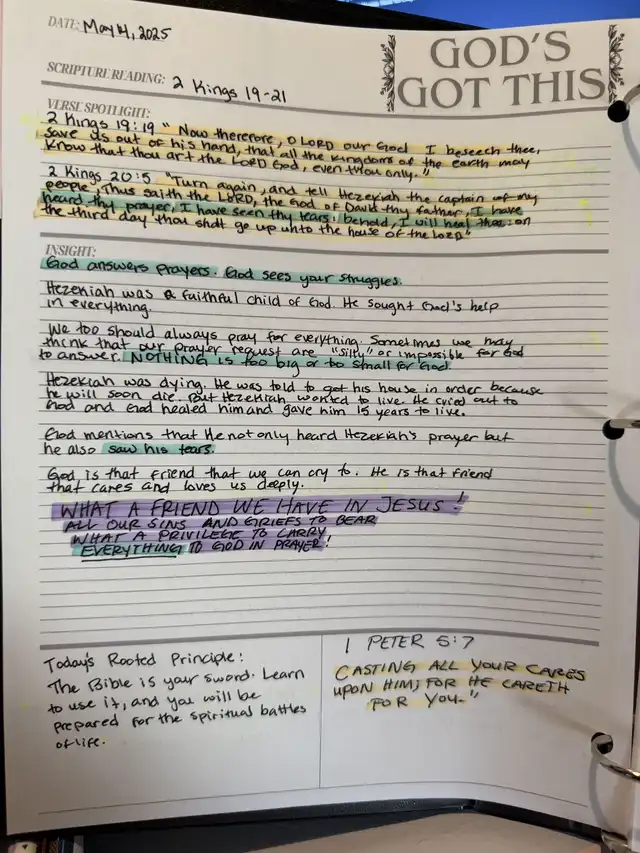 DATE: May 14, 2025
GOD'S
GOT THIS
SCRIPTURE READING: 2 Kings 19-21
VERSE SPOTLIGHT:
2 Kings 19:19 "Now therefore, O LORD our God I beseech thee,
save us out of his hand, that all the kingdoms of the earth may
know that thou art the LORD God, even thou only."
2 Kings 20:5 "Turn again, and tell Hezekiah the captain of my
people, Thus saith the LORD, the God of David thy father, I have
heard thy prayer, I have seen thy tears: behold, I will heal thee: on
the third day thou shalt go up unto the house of the LORD"
INSIGHT:
God answers prayers. God sees your struggles.
Hezekiah was a faithful child of God. He sought God's help
in everything.
We too should always pray for everything. Sometimes we may
think that our prayer request are "silly" or impossible for God
to answer. NOTHING is too big or too small for God.
Hezekiah was dying. He was told to get his house in order because
he will soon die. But Hezekiah wanted to live. He cried out to
God and God healed him and gave him 15 years to live.
God mentions that He not only heard Hezekiah's prayer but
he also saw his tears.
God is that friend that we can cry to. He is that friend
that cares and loves us deeply.
WHAT A FRIEND WE HAVE IN JESUS!
ALL OUR SINS AND GRIEFS TO BEAR
WHAT A PRIVILEGE TO CARRY
EVERYTHING TO GOD IN PRAYER!
Today's Rooted Principle:
The Bible is your sword. Learn
to use it, and you will be
prepared for the spiritual battles
of life.
1 PETER 5:7
CASTING ALL YOUR CARES
UPON HIM; FOR HE CARETH
FOR YOU."